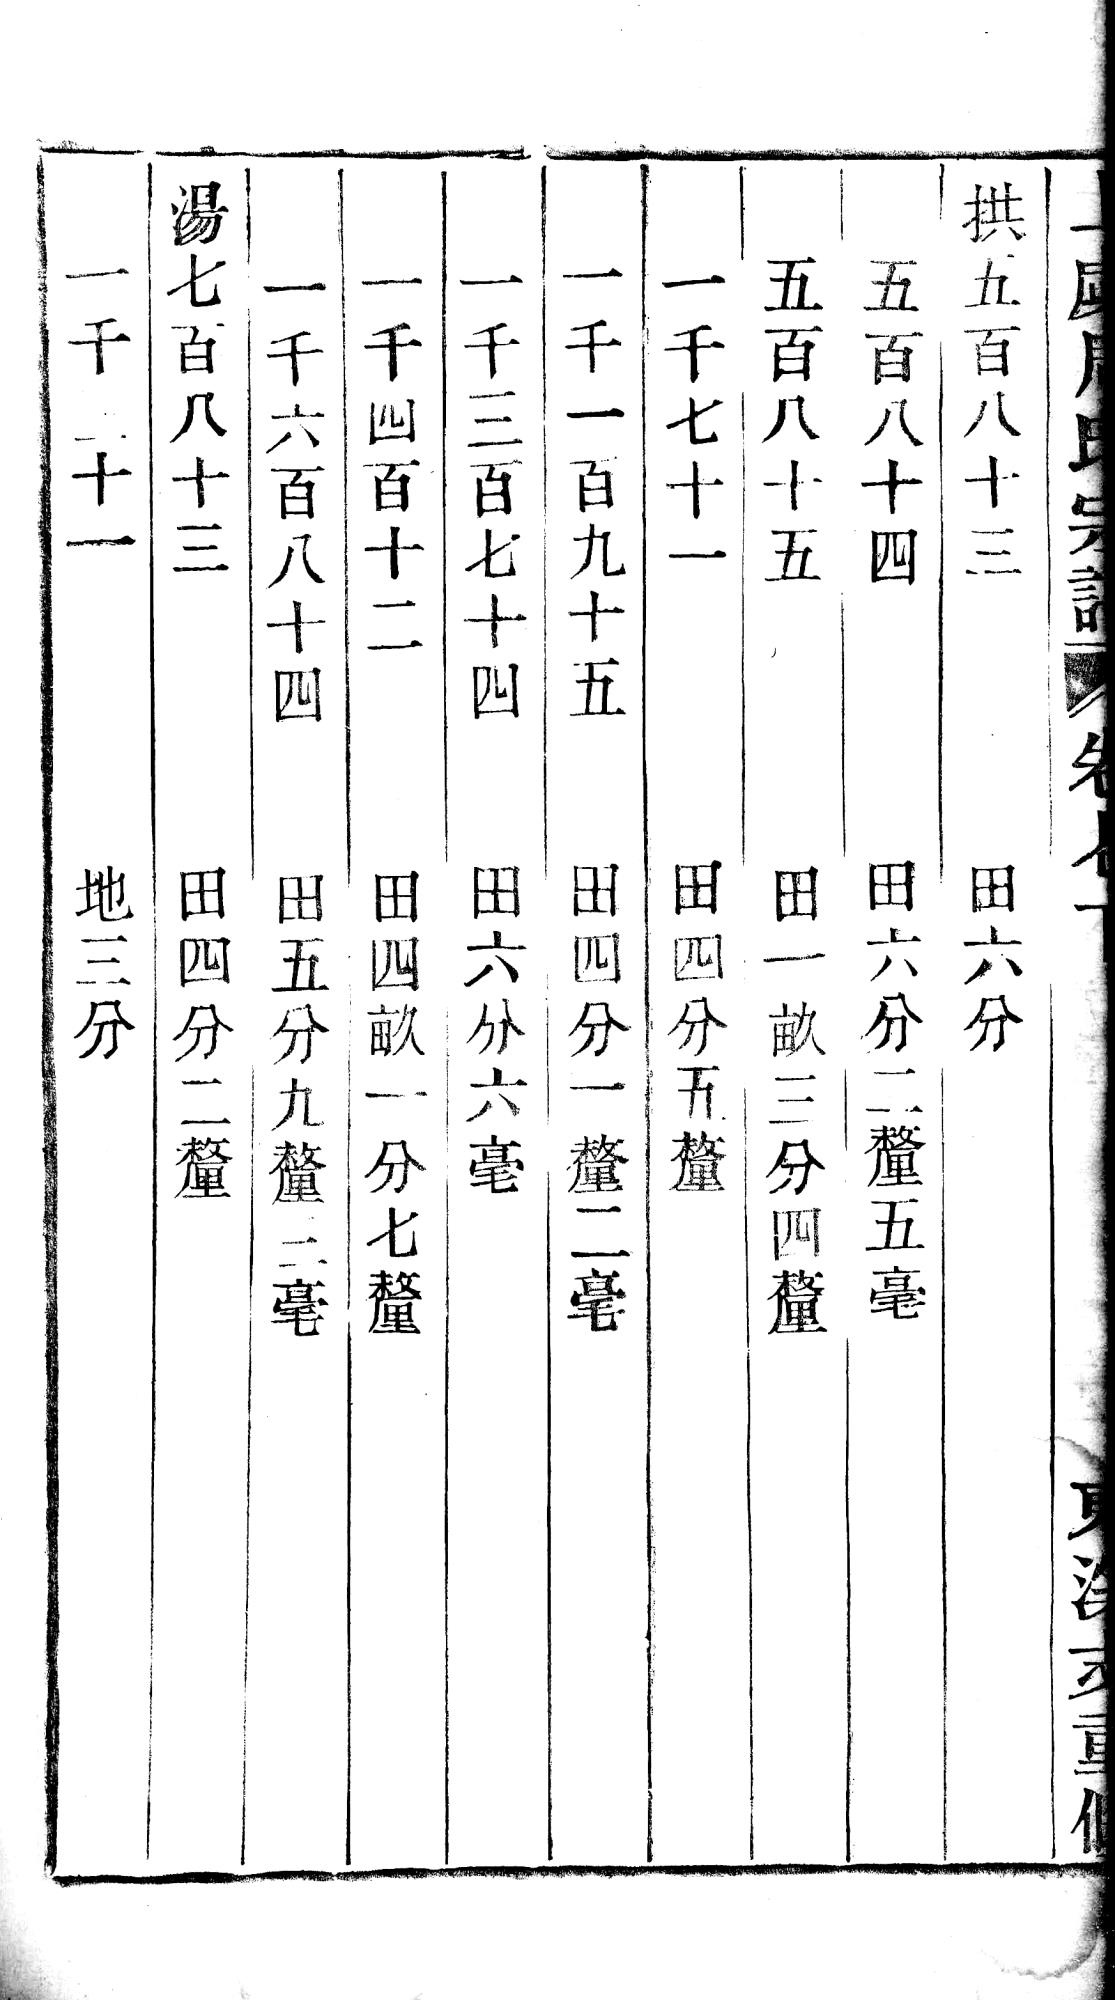 拱五百八十三　田六分
五百八十四　田六分二釐五毫
五百八十五　田一畝三分四釐
一千七十一　田四分五釐
一千一百九十五　田四分一釐二毫
一千三百七十四　田六分六毫
一千四百十二　田四畝一分七釐
一千六百八十四　田五分九釐二毫
湯七百八十三　田四分二釐
一千二十一　地三分